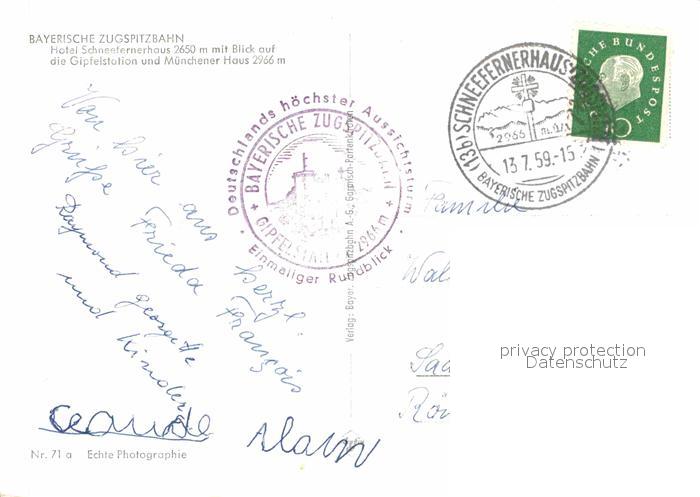 BAYERISCHE ZUGSPITZBAHN
Hotel Schneefernerhaus 2650 m mit Blick auf
die Gipfelstation und Münchener Haus 2966 m
Von hier aus herzl.
Grüße Frieda François
Raymond Georgette
und Kinder
Claude Alain
Nr. 71 a Echte Photographie
Deutschlands höchster Aussichtsturm
Einmaliger Rundblick
+ BAYERISCHE ZUGSPITZBAHN +
GIPFELSTATION 2966 m
Verlag: Bayer. Zugspitzbahn A.-G., Garmisch-Partenkirchen
(13b) SCHNEEFERNERHAUS
2966 m.ü.M.
13.7.59.-15
BAYERISCHE ZUGSPITZBAHN
DEUTSCHE BUNDESPOST
10
Familie
Wal
Saa
privacy protection
Datenschutz